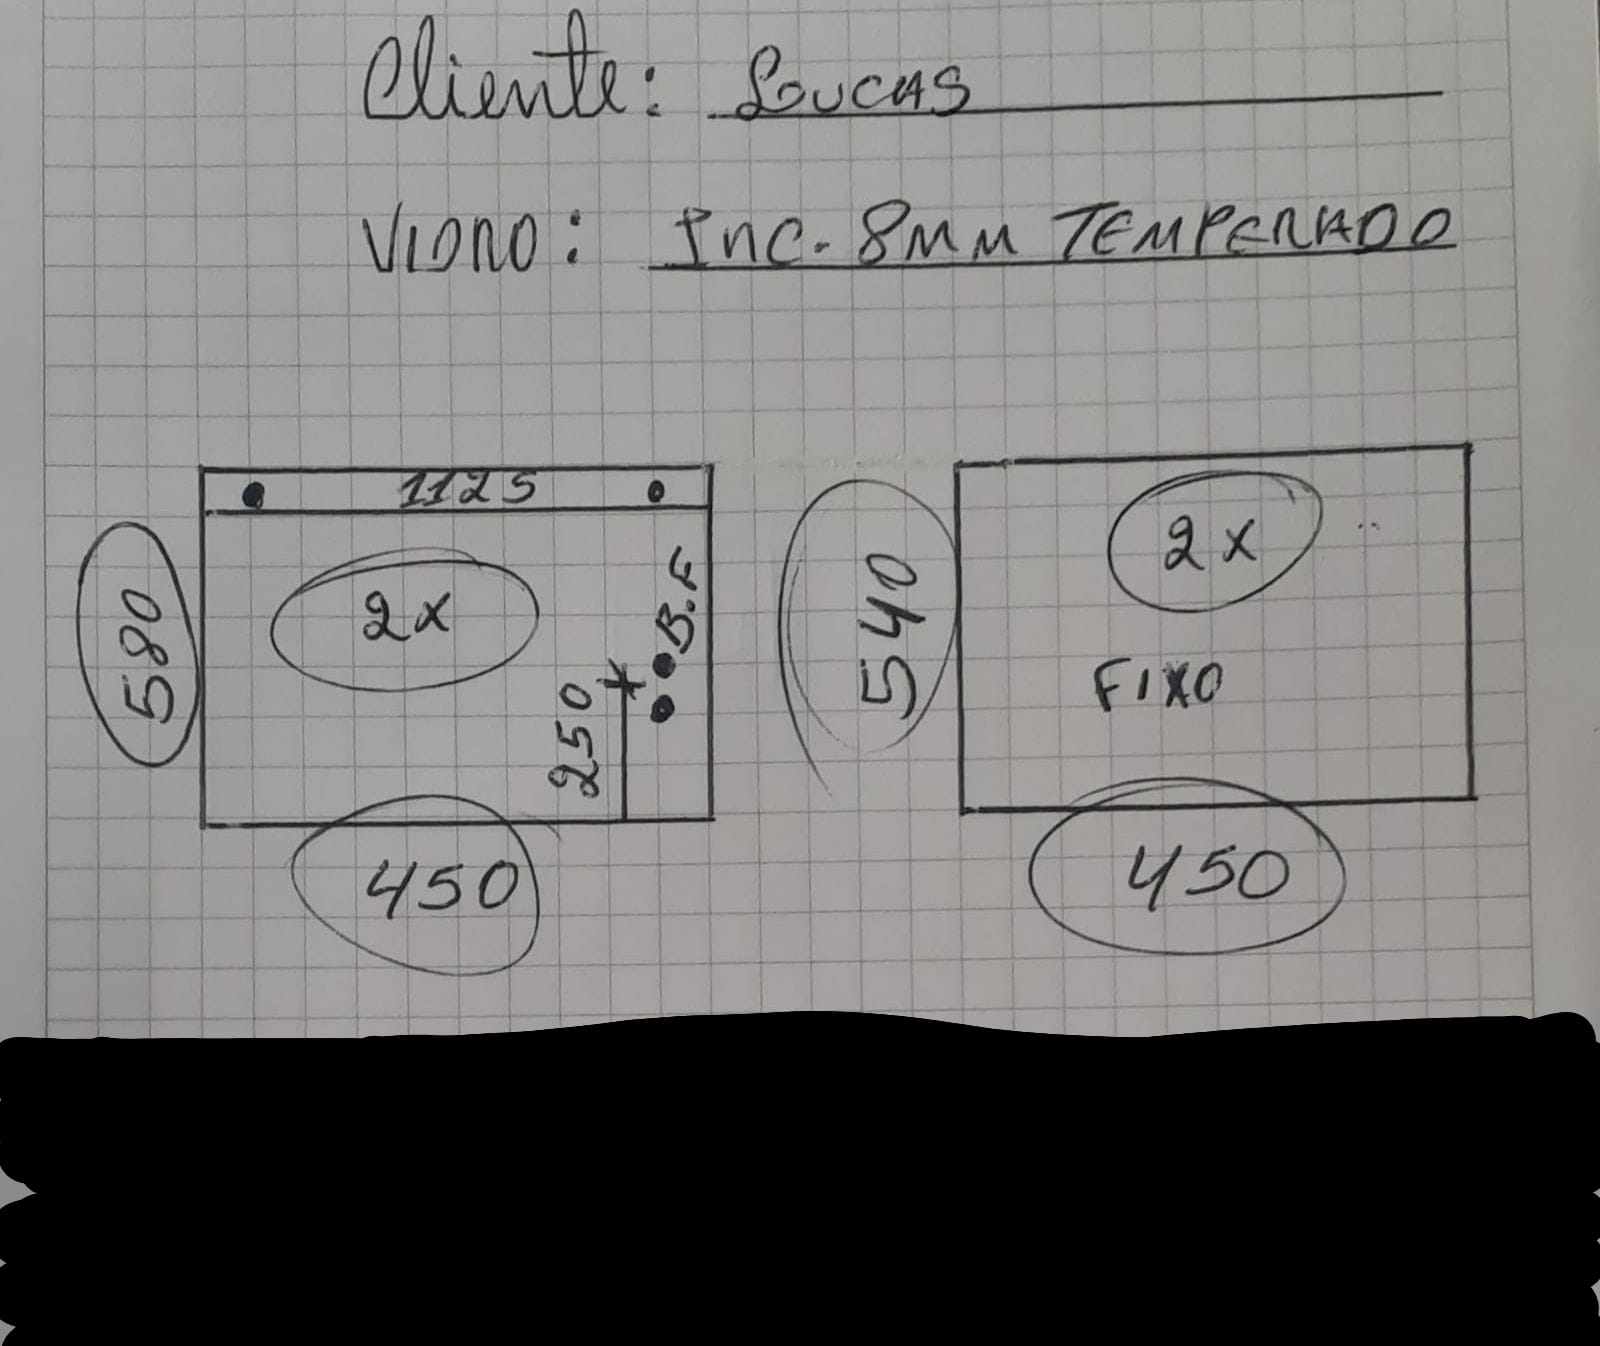 Cliente: Loucas
VIDRO: Inc. 8MM TEMPERADO
1125
580
2x
B.F
250
450
540
2x
FIXO
450